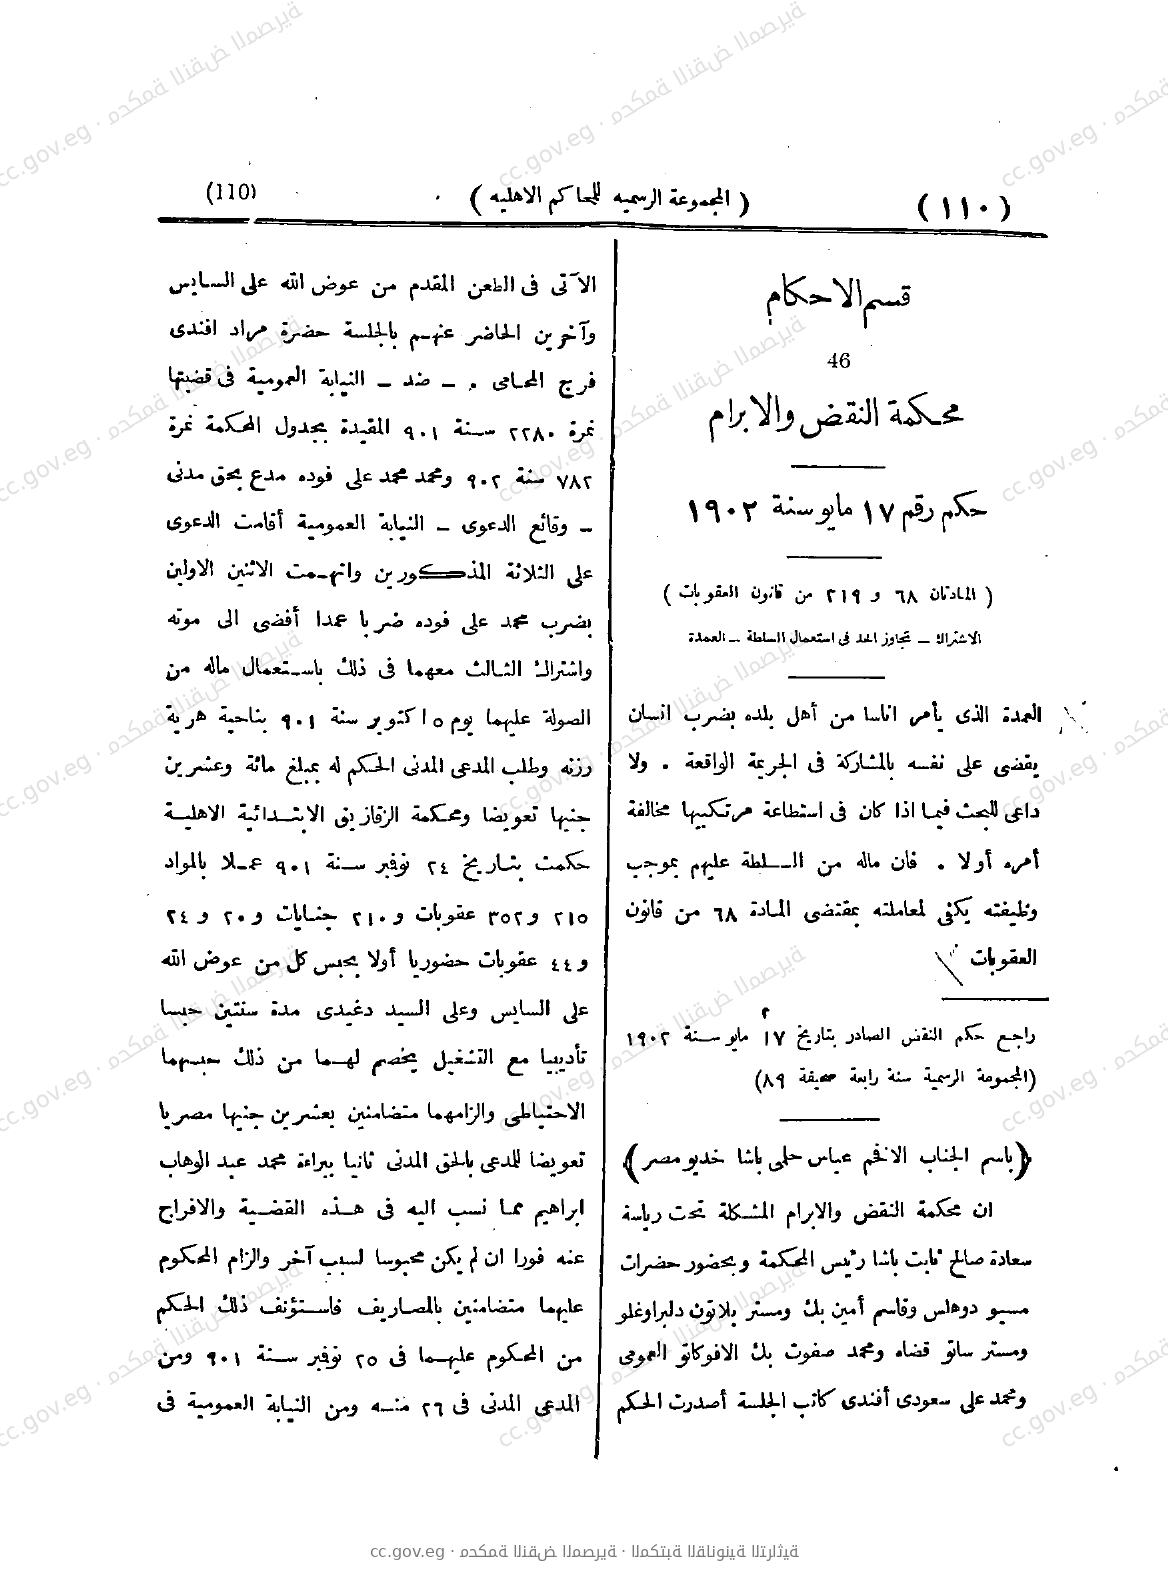 (١١٠)
( المجموعة الرسميه للمحاكم الاهليه )
(110)
قسم الاحكام
46
محكمة النقض والابرام
حكم رقم ١٧ مايو سنة ١٩٠٢
( المادتان ٦٨ و ٢١٩ من قانون العقوبات )
الاشتراك ــ تجاوز الحد فى استعمال السلطة ــ العمدة
العمدة الذى يأمر اناسا من أهل بلده بضرب انسان
يقضى على نفسه بالمشاركة فى الجريمة الواقعة . ولا
داعى للبحث فيما اذا كان فى استطاعة مرتكبيها مخالفة
أمره أولا . فان ماله من السلطة عليهم بموجب
وظيفته يكفى لمعاملته بمقتضى المادة ٦٨ من قانون
العقوبات
راجع حكم النقض الصادر بتاريخ ١٧ مايو سنة ١٩٠٢
(المجموعة الرسمية سنة رابعة صحيفة ٨٩)
(باسم الجناب الافخم عباس حلمى باشا خديو مصر)
ان محكمة النقض والابرام المشكلة تحت رياسة
سعادة صالح ثابت باشا رئيس المحكمة وبحضور حضرات
مسيو دوهلس وقاسم أمين بك ومستر بلاتون دلبراوغلو
ومستر ساتو قضاه ومحمد صفوت بك الافوكاتو العمومى
ومحمد على سعودى أفندى كاتب الجلسة أصدرت الحكم
الآتى فى الطعن المقدم من عوض الله على السايس
وآخرين الحاضر عنهم بالجلسة حضرة مراد افندى
فرج المحامى . ــ ضد ــ النيابة العمومية فى قضيتها
نمرة ٢٢٨٠ سنة ٩٠١ المقيدة بجدول المحكمة نمرة
٧٨٢ سنة ٩٠٢ ومحمد محمد على فوده مدع بحق مدنى
ــ وقائع الدعوى ــ النيابة العمومية أقامت الدعوى
على الثلاثة المذكورين واتهمت الاثنين الاولين
بضرب محمد على فوده ضربا عمدا أفضى الى موته
واشتراك الثالث معهما فى ذلك باستعمال ماله من
الصولة عليهما يوم ١٥ اكتوبر سنة ٩٠١ بناحية هرية
رزنه وطلب المدعى المدنى الحكم له بمبلغ مائة وعشرين
جنيها تعويضا ومحكمة الزقازيق الابتدائية الاهلية
حكمت بتاريخ ٢٤ نوفمبر سنة ٩٠١ عملا بالمواد
٢١٥ و٣٥٢ عقوبات و٢١٠ جنايات و٢٠ و٢٤
و٤٤ عقوبات حضوريا أولا بحبس كل من عوض الله
على السايس وعلى السيد دغيدى مدة سنتين حبسا
تأديبيا مع التشغيل يخصم لهما من ذلك حبسهما
الاحتياطى والزامهما متضامنين بعشرين جنيها مصريا
تعويضا للمدعى بالحق المدنى ثانيا ببراءة محمد عبد الوهاب
ابراهيم مما نسب اليه فى هذه القضية والافراج
عنه فورا ان لم يكن محبوسا لسبب آخر والزام المحكوم
عليهما متضامنين بالمصاريف فاستؤنف ذلك الحكم
من المحكوم عليهما فى ٢٥ نوفمبر سنة ٩٠١ ومن
المدعى المدنى فى ٢٦ منه ومن النيابة العمومية فى
cc.gov.eg · محكمة النقض المصرية · المكتبة القانونية التراثية